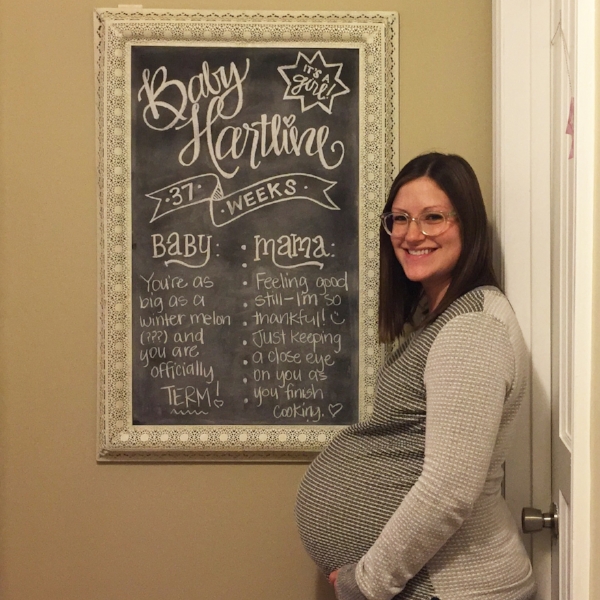 Baby
IT'S A
girl!
Hartline
37 WEEKS
BABY:
You're as
big as a
winter melon
(???) and
you are
officially
TERM!
mama:
Feeling good
still-I'm so
thankful!
Just keeping
a close eye
on you as
you finish
cooking.